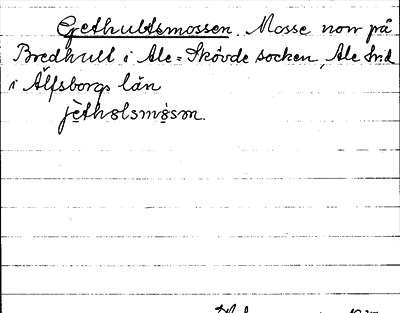 Gethultsmossen. Mosse norr på
Bredhult i Ale-Skövde socken, Ale hrd
i Älfsborgs län
jèthɵlsmɵ̀sɵn.